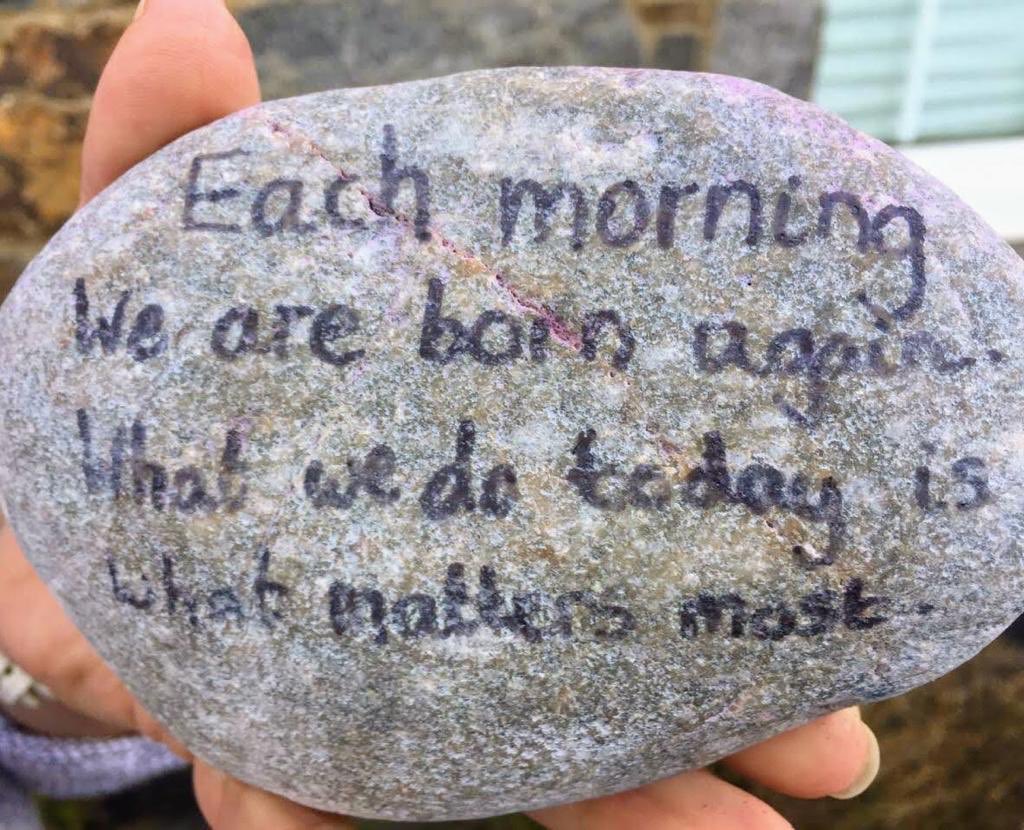 Each morning
We are born again.
What we do today is
what matters most.